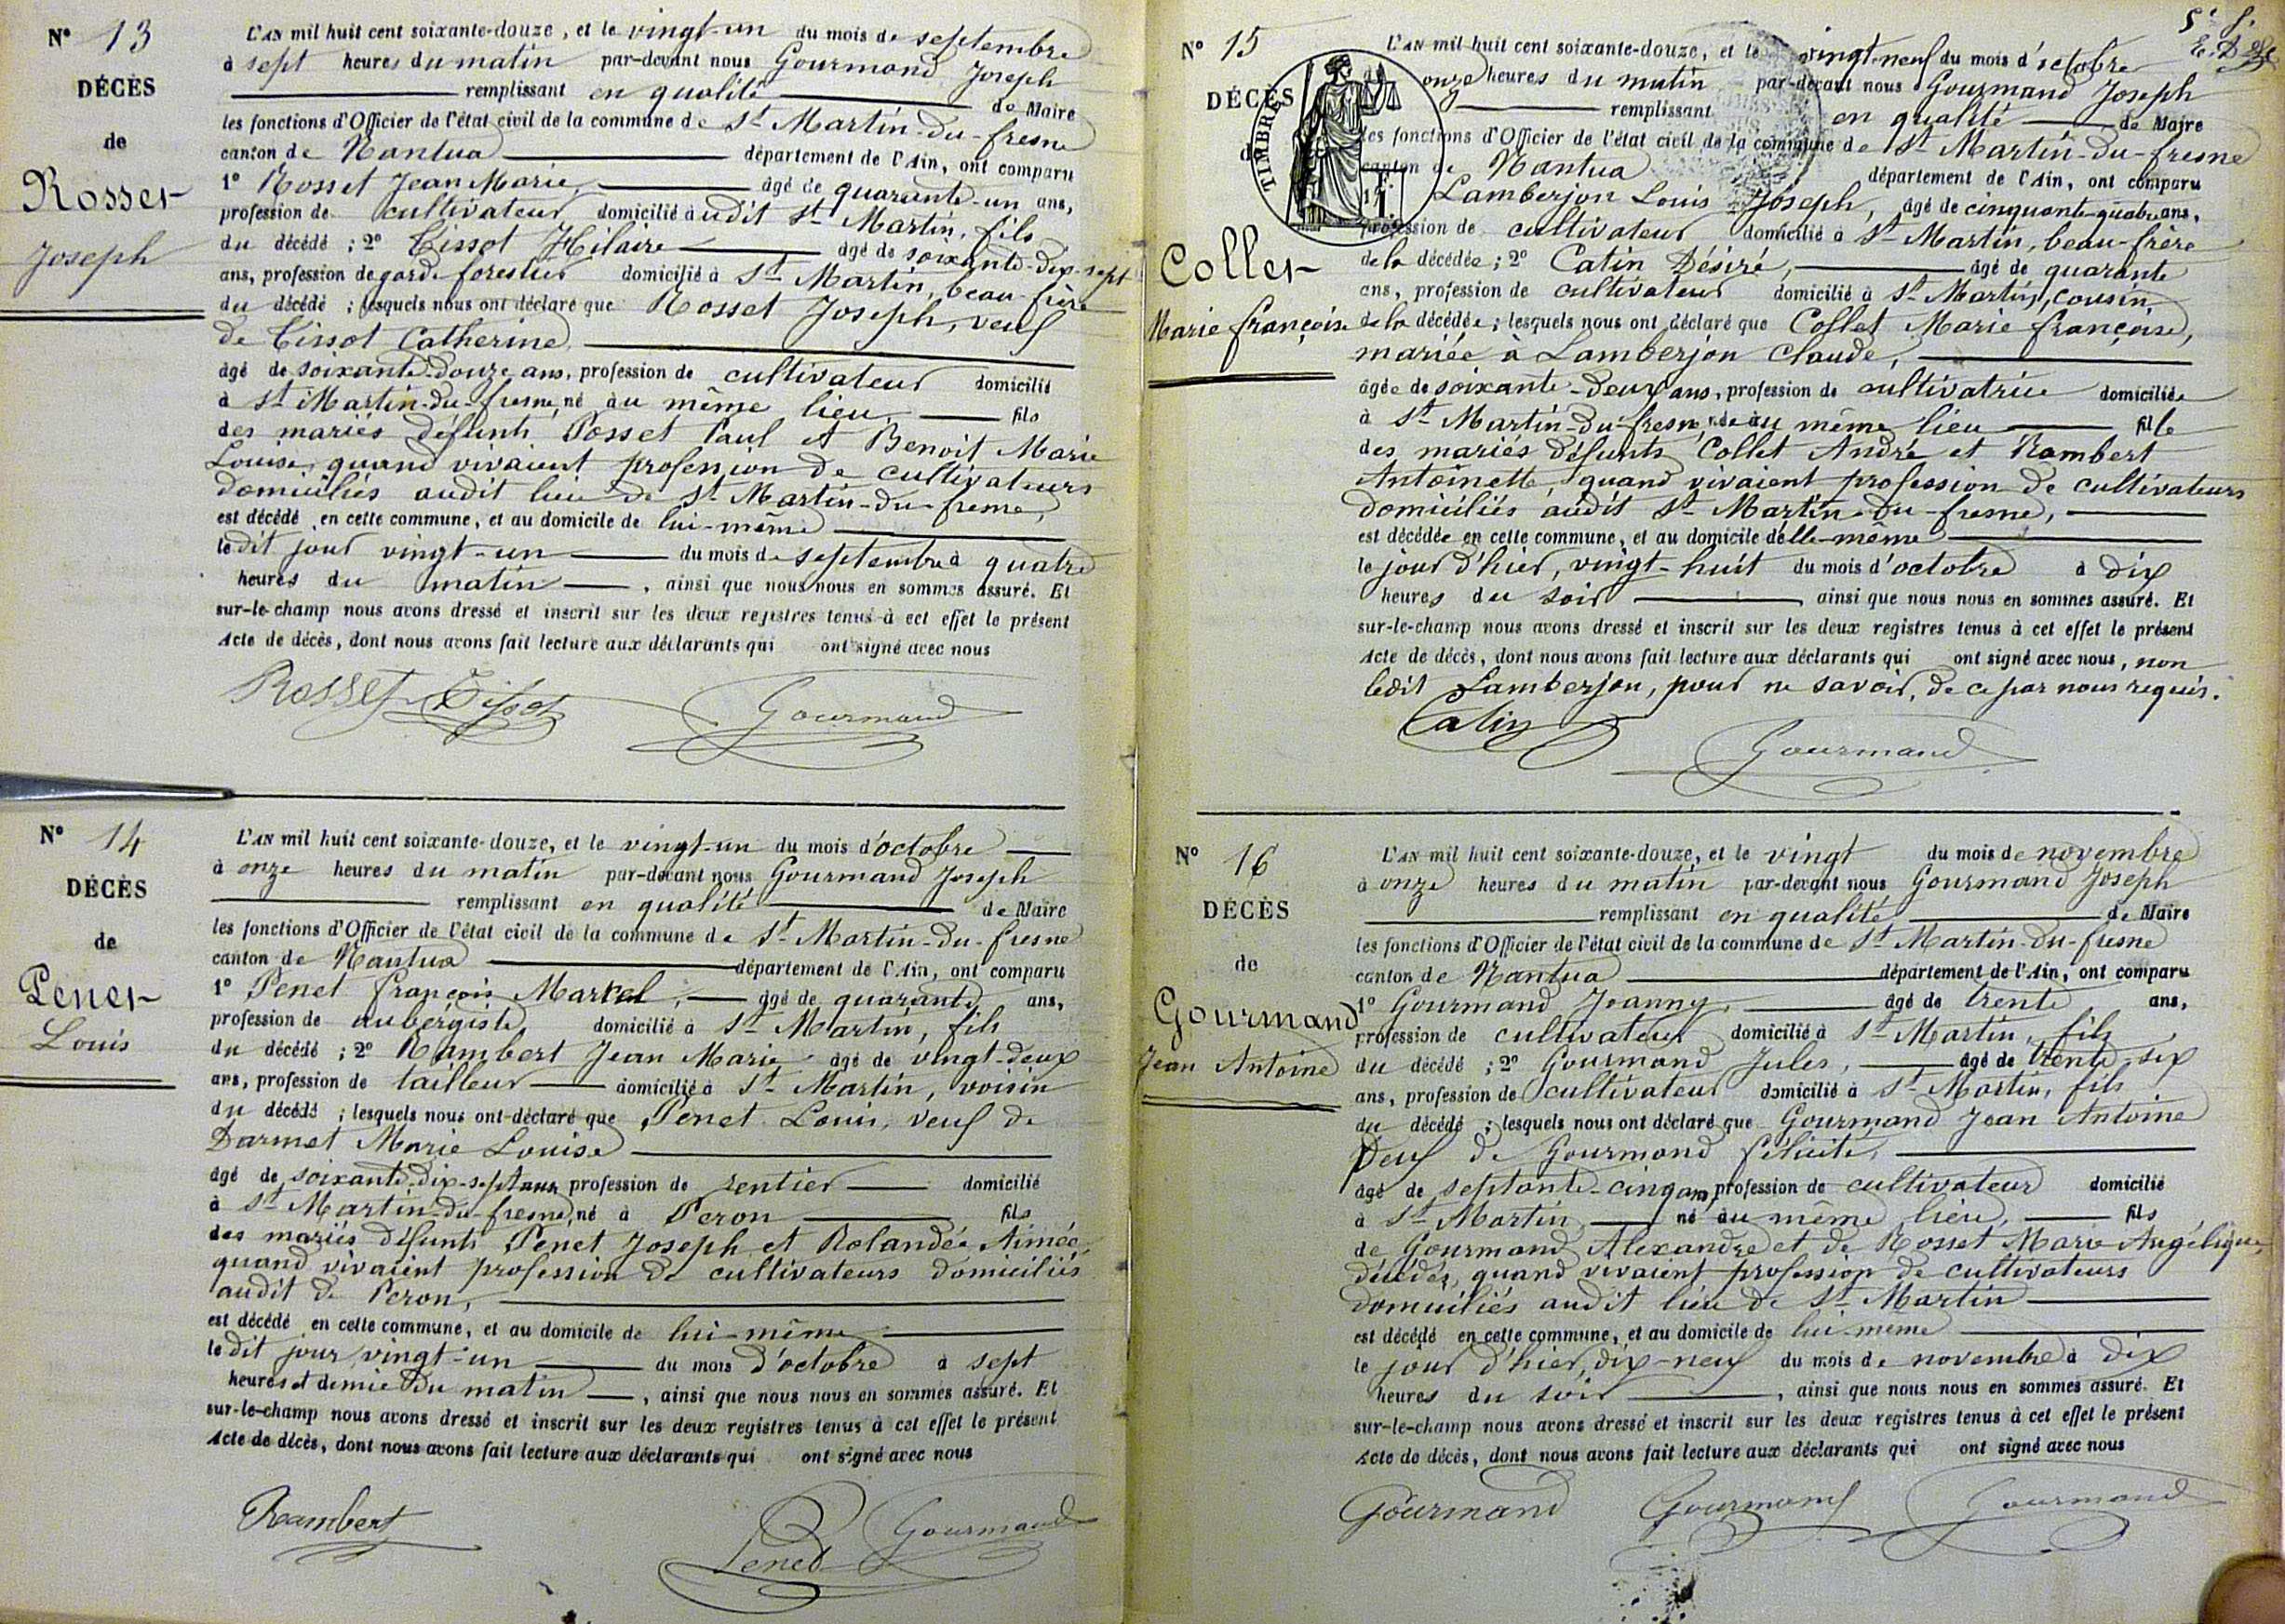 N° 13
DÉCÈS
de
Rosset
Joseph
L'AN mil huit cent soixante-douze, et le vingt-un du mois de septembre
à sept heures du matin par-devant nous Gourmand Joseph
remplissant en qualité de Maire
les fonctions d'Officier de l'état civil de la commune de St Martin-du-fresne
canton de Nantua département de l'Ain, ont comparu
1° Rosset Jean Marie, âgé de quarante-un ans,
profession de cultivateur domicilié audit St Martin, fils
du décédé ; 2° Tissot Hilaire âgé de soixante-dix-sept
ans, profession de garde forestier domicilié à St Martin, beau-frère
du décédé ; lesquels nous ont déclaré que Rosset Joseph, veuf
de Tissot Catherine,
âgé de soixante-douze ans, profession de cultivateur domicilié
à St Martin-du-fresne, né au même lieu, fils
des mariés défunts Rosset Paul et Benoit Marie
Louise, quand vivaient profession de cultivateurs
domiciliés audit lieu de St Martin-du-fresne,
est décédé en cette commune, et au domicile de lui-même
ledit jour vingt-un du mois de septembre à quatre
heures du matin, ainsi que nous nous en sommes assuré. Et
sur-le-champ nous avons dressé et inscrit sur les deux registres tenus à cet effet le présent
Acte de décès, dont nous avons fait lecture aux déclarants qui ont signé avec nous
Rosset Tissot Gourmand
N° 14
DÉCÈS
de
Penet
Louis
L'AN mil huit cent soixante-douze, et le vingt-un du mois d'octobre
à onze heures du matin par-devant nous Gourmand Joseph
remplissant en qualité de Maire
les fonctions d'Officier de l'état civil de la commune de St Martin-du-fresne
canton de Nantua département de l'Ain, ont comparu
1° Penet françois Marcel, âgé de quarante ans,
profession de aubergiste, domicilié à St Martin, fils
du décédé ; 2° Rambert Jean Marie âgé de vingt-deux
ans, profession de tailleur domicilié à St Martin, voisin
du décédé ; lesquels nous ont déclaré que Penet Louis, veuf de
Darmet Marie Louise
âgé de soixante-dix-sept ans profession de rentier domicilié
à St Martin-du-fresne, né à Peron fils
des mariés défunts Penet Joseph et Rolandée Aimée,
quand vivaient profession de cultivateurs domiciliés
audit de Peron,
est décédé en cette commune, et au domicile de lui-même
ledit jour vingt-un du mois d'octobre à sept
heures et demie du matin, ainsi que nous nous en sommes assuré. Et
sur-le-champ nous avons dressé et inscrit sur les deux registres tenus à cet effet le présent
Acte de décès, dont nous avons fait lecture aux déclarants qui ont signé avec nous
Rambert Penet Gourmand
N° 15
DÉCÈS
de
Collet
Marie françoise
TIMBRE
L'AN mil huit cent soixante-douze, et le vingt-neuf du mois d'octobre
onze heures du matin par-devant nous Gourmand Joseph
remplissant en qualité de Maire
les fonctions d'Officier de l'état civil de la commune de St Martin-du-fresne
canton de Nantua département de l'Ain, ont comparu
1° Lamberjon Louis Joseph, âgé de cinquante-quatre ans,
profession de cultivateur domicilié à St Martin, beau-frère
de la décédée ; 2° Catin Désiré, âgé de quarante
ans, profession de cultivateur domicilié à St Martin, cousin
de la décédée ; lesquels nous ont déclaré que Collet Marie françoise,
mariée à Lamberjon Claude,
âgée de soixante-deux ans, profession de cultivatrice domiciliée
à St Martin-du-fresne, née au même lieu fille
des mariés défunts Collet André et Rambert
Antoinette, quand vivaient profession de cultivateurs
domiciliés audit St Martin-du-fresne,
est décédée en cette commune, et au domicile d'elle-même
le jour d'hier, vingt-huit du mois d'octobre à dix
heures du soir ainsi que nous nous en sommes assuré. Et
sur-le-champ nous avons dressé et inscrit sur les deux registres tenus à cet effet le présent
Acte de décès, dont nous avons fait lecture aux déclarants qui ont signé avec nous, non
ledit Lamberjon, pour ne savoir, de ce par nous requis.
Catin Gourmand
N° 16
DÉCÈS
de
Gourmand
Jean Antoine
L'AN mil huit cent soixante-douze, et le vingt du mois de novembre
à onze heures du matin par-devant nous Gourmand Joseph
remplissant en qualité de Maire
les fonctions d'Officier de l'état civil de la commune de St Martin-du-fresne
canton de Nantua département de l'Ain, ont comparu
1° Gourmand Joanny, âgé de trente ans,
profession de cultivateur domicilié à St Martin, fils
du décédé ; 2° Gourmand Jules, âgé de trente-six
ans, profession de cultivateur domicilié à St Martin, fils
du décédé ; lesquels nous ont déclaré que Gourmand Jean Antoine
veuf de Gourmand félicité,
âgé de septante-cinq ans, profession de cultivateur domicilié
à St Martin né au même lieu, fils
de Gourmand Alexandre et de Rosset Marie Angélique,
décédés, quand vivaient profession de cultivateurs
domiciliés audit lieu de St Martin
est décédé en cette commune, et au domicile de lui-même
le jour d'hier, dix-neuf du mois de novembre à dix
heures du soir, ainsi que nous nous en sommes assuré. Et
sur-le-champ nous avons dressé et inscrit sur les deux registres tenus à cet effet le présent
Acte de décès, dont nous avons fait lecture aux déclarants qui ont signé avec nous
Gourmand Gourmand Gourmand